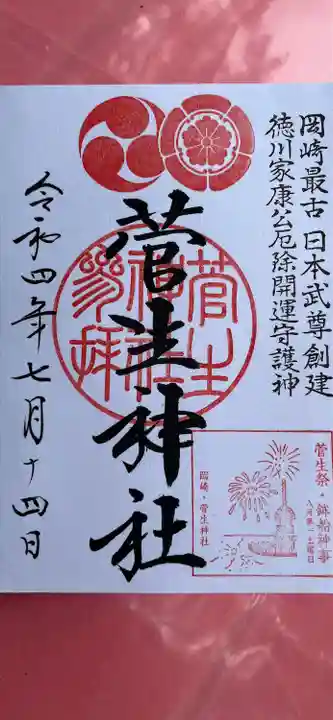 岡崎最古 日本武尊創建
徳川家康公厄除開運守護神
菅生神社
菅生神社参拝
菅生祭・鉾船神事
八月第一土曜日
岡崎・菅生神社
令和四年七月十四日